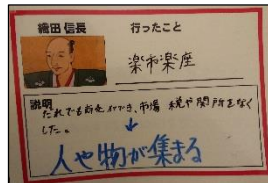 織田信長
行ったこと
楽市楽座
説明
だれでも商売ができ、市場の税や関所をなく
した。
↓
人や物が集まる